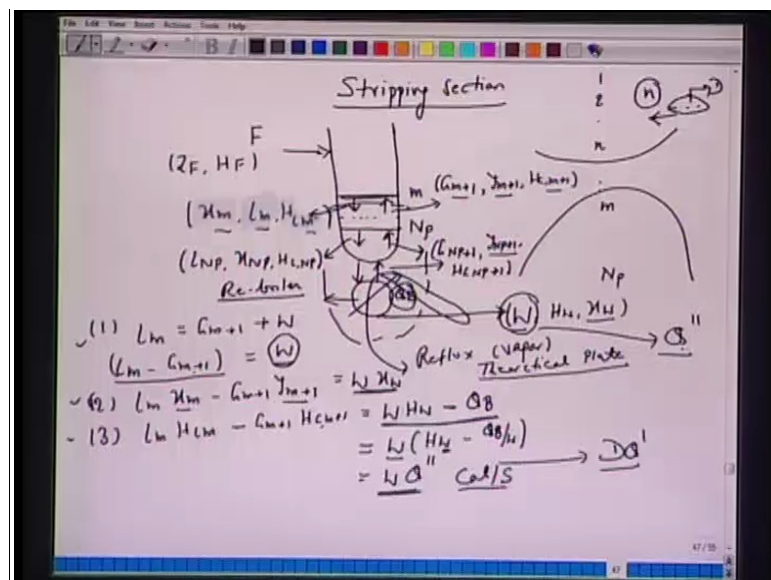 File Edit View Insert Actions Tools Help
Stripping section
1
2
.
n
.
m
Np
(n)
D
F
(Z_F, H_F)
m (G_m+1, y_m+1, H_G,m+1)
(x_m, L_m, H_Lm)
Np
(L_Np, x_Np, H_L,Np)
(G_Np+1, y_Np+1, H_G,Np+1)
Re-boiler
Q_B
(W) H_W, x_W)
Q''
Reflux (vapor)
Theoretical plate
(1) L_m = G_m+1 + W
(L_m - G_m+1) = W
(2) L_m x_m - G_m+1 y_m+1 = W x_W
(3) L_m H_Lm - G_m+1 H_G,m+1 = W H_W - Q_B
= W (H_W - Q_B/W)
= W Q'' Cal/s → DQ'
47/55
47